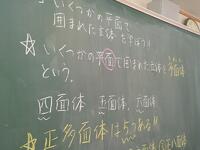 いくつかの平面で
囲まれた立体を
☆いくつかの平面で囲まれた立体を多面体
という。
四面体 五面体 六面体
☆正多面体は5つある!!